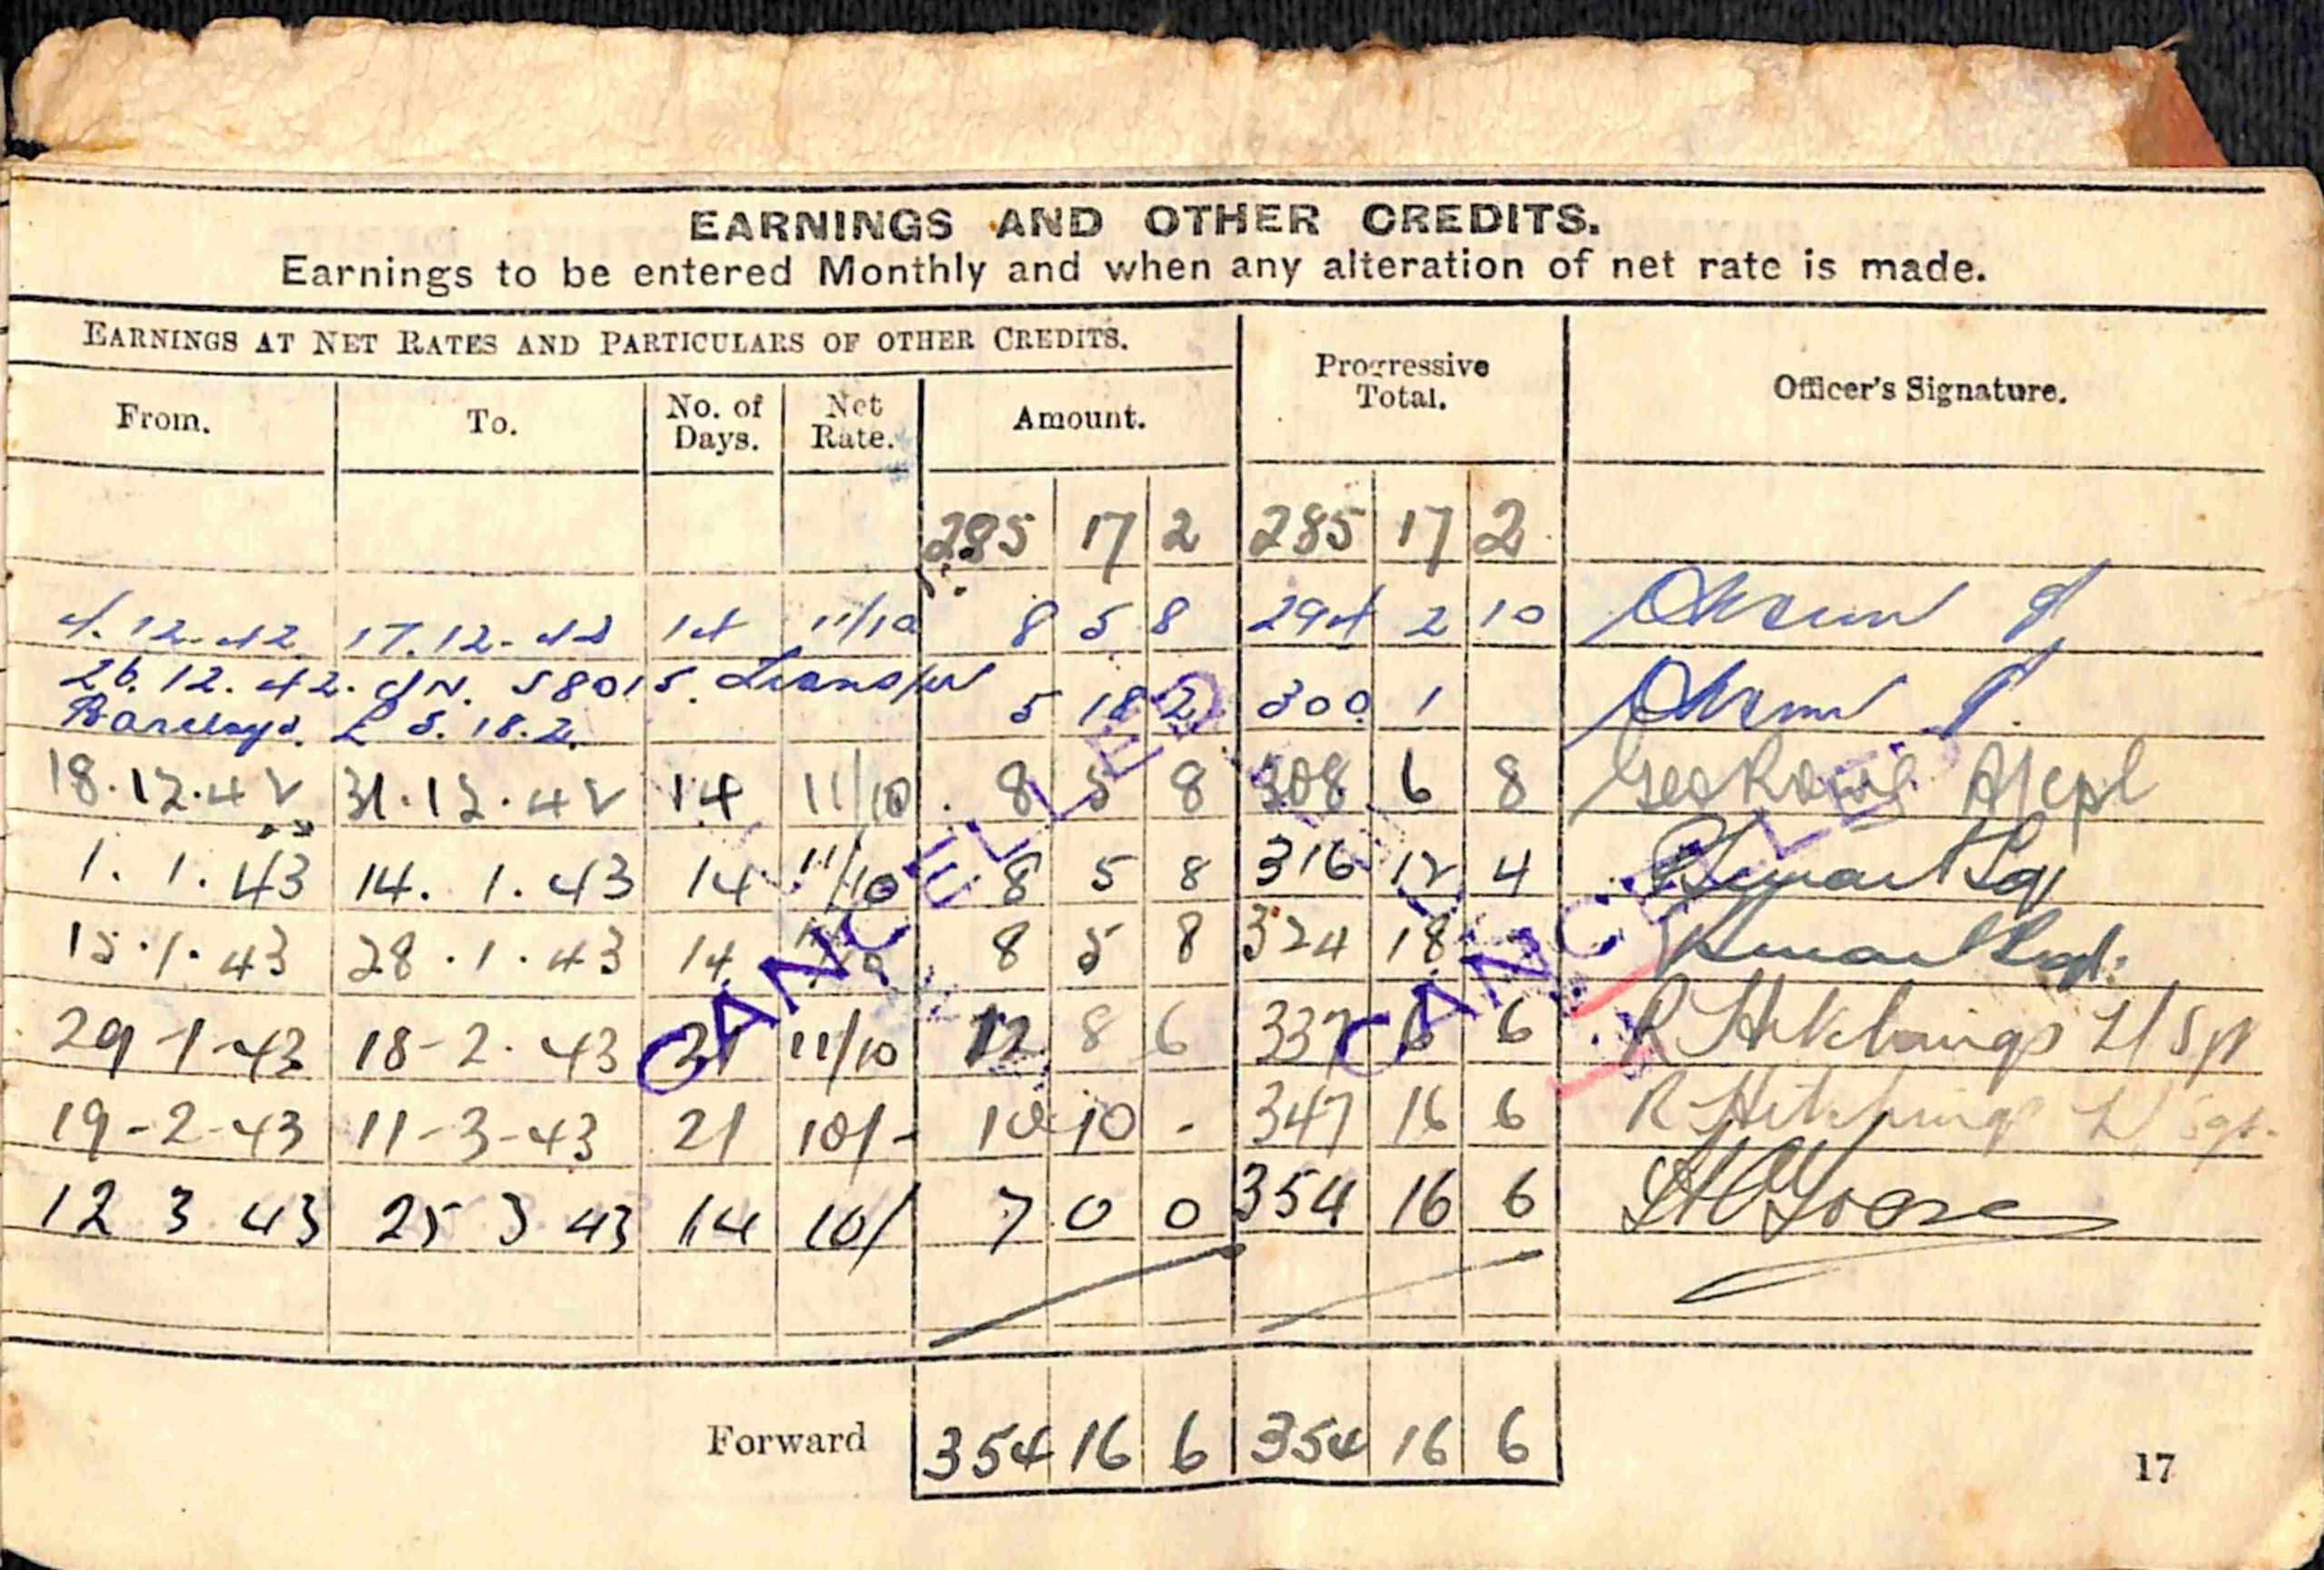 EARNINGS AND OTHER CREDITS.
Earnings to be entered Monthly and when any alteration of net rate is made.
EARNINGS AT NET RATES AND PARTICULARS OF OTHER CREDITS.
Progressive Total.
Officer's Signature.
From. To. No. of Days. Net Rate. Amount.
285 17 2 285 17 2
4.12.42 17.12.42 14 11/10 8 5 8 294 2 10
26.12.42. 58015. Transfer 5 18 2 300 1
Barclays. £5.18.2.
18.12.42 31.12.42 14 11/10 8 5 8 308 6 8
1.1.43 14.1.43 14 11/10 8 5 8 316 12 4
15.1.43 28.1.43 14 8 5 8 324 18
29-1-43 18-2.43 21 11/10 12 8 6 337 6 6
19-2-43 11-3-43 21 10/- 10 10 - 347 16 6
12 3 43 25 3 43 14 10/ 7 0 0 354 16 6
CANCELLED
CANCELLED
Forward 354 16 6 354 16 6
17